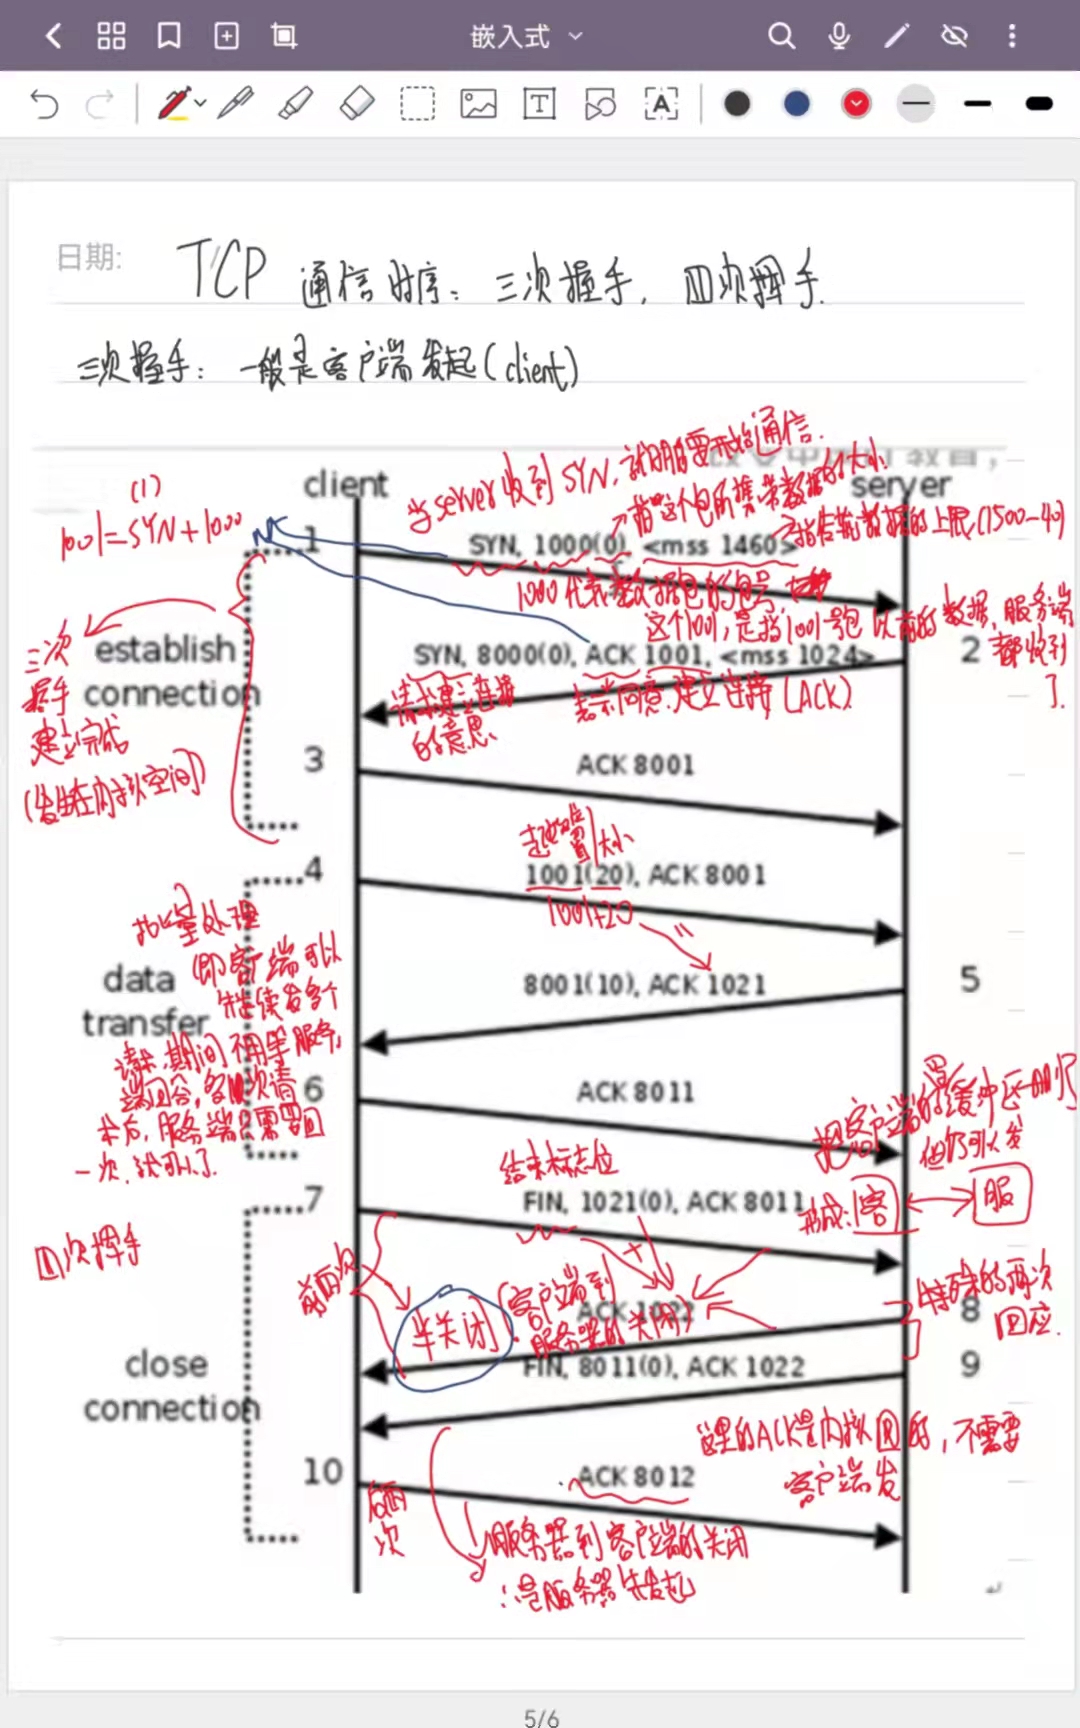 嵌入式
日期:
TCP 通信时序：三次握手，四次挥手.
三次握手：一般是客户端发起(client)
client
server
当server收到SYN，就明白要开始通信.
指这个包所携带数据的大小
(1)
1001=SYN+1000
1
SYN, 1000(0), <mss 1460>
指传输数据的上限(1500-40)
1000代表数据包的包号
这个1001，是指1001号包以前的数据，服务端
都收到
了.
establish
connection
三次
握手
建立完成
(发生在内核空间)
SYN, 8000(0), ACK 1001, <mss 1024>
2
请求建立连接
的意思
表示同意建立连接(ACK)
3
ACK 8001
起始位置
大小
4
1001(20), ACK 8001
1001+20
批量处理
(即客户端可以
继续发多个
请求,期间不用等服务
端回答,多次请
求后，服务端只需要回
一次，就可以了.
data
transfer
8001(10), ACK 1021
5
6
ACK 8011
把客户端的缓冲区关闭了
但仍可以发
结束标志位
7
FIN, 1021(0), ACK 8011
形成:客
服
四次挥手
前两次
半关闭
(客户端到
服务器的关闭)
ACK 1022
8
特殊的两次
回应.
close
connection
FIN, 8011(0), ACK 1022
9
这里的ACK是内核回的，不需要
客户端发
10
ACK 8012
后两
次
服务器到客户端的关闭
∴是服务器先发起
5/6